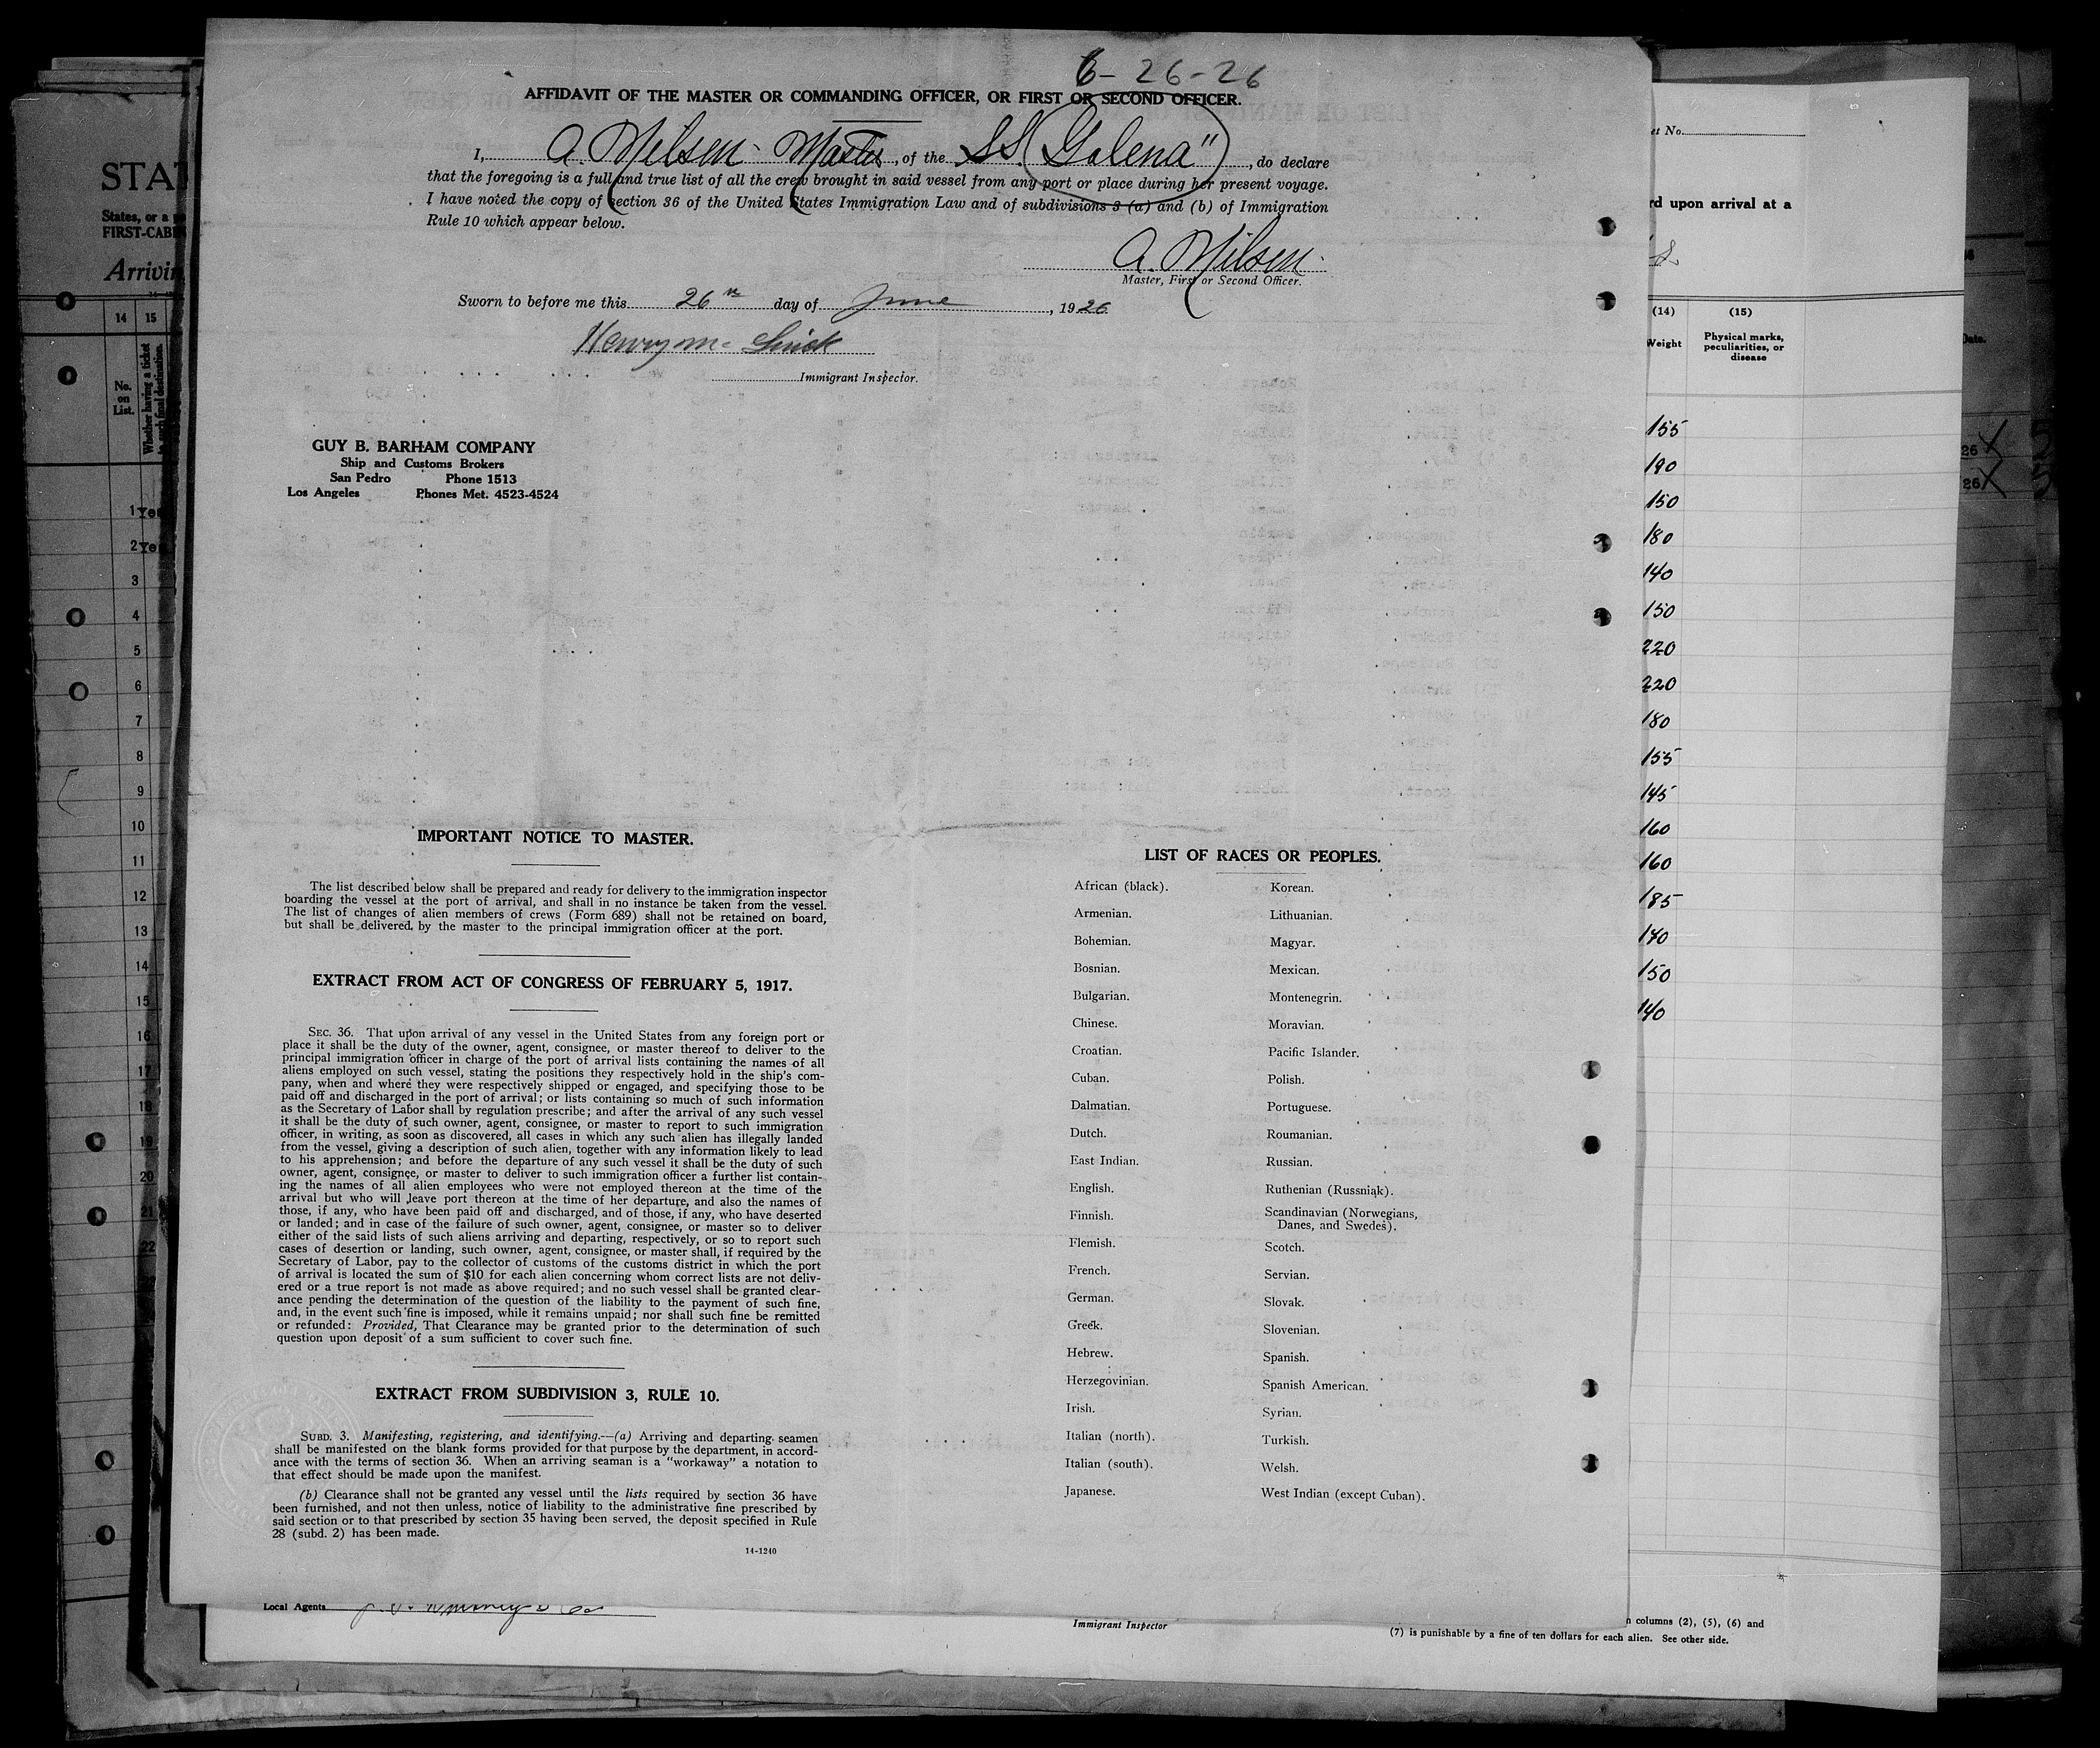 6-26-26
AFFIDAVIT OF THE MASTER OR COMMANDING OFFICER, OR FIRST OR SECOND OFFICER.
I, A. Nilsen Master, of the SS. "Galena", do declare
that the foregoing is a full and true list of all the crew brought in said vessel from any port or place during her present voyage.
I have noted the copy of section 36 of the United States Immigration Law and of subdivisions 3 (a) and (b) of Immigration
Rule 10 which appear below.
A. Nilsen
Master, First or Second Officer.
Sworn to before me this 26th day of June, 1926
Henry
Immigrant Inspector.
GUY B. BARHAM COMPANY
Ship and Customs Brokers
San Pedro Phone 1513
Los Angeles Phones Met. 4523-4524
IMPORTANT NOTICE TO MASTER.
The list described below shall be prepared and ready for delivery to the immigration inspector
boarding the vessel at the port of arrival, and shall in no instance be taken from the vessel.
The list of changes of alien members of crews (Form 689) shall not be retained on board,
but shall be delivered by the master to the principal immigration officer at the port.
EXTRACT FROM ACT OF CONGRESS OF FEBRUARY 5, 1917.
SEC. 36. That upon arrival of any vessel in the United States from any foreign port or
place it shall be the duty of the owner, agent, consignee, or master thereof to deliver to the
principal immigration officer in charge of the port of arrival lists containing the names of all
aliens employed on such vessel, stating the positions they respectively hold in the ship's com-
pany, when and where they were respectively shipped or engaged, and specifying those to be
paid off and discharged in the port of arrival; or lists containing so much of such information
as the Secretary of Labor shall by regulation prescribe; and after the arrival of any such vessel
it shall be the duty of such owner, agent, consignee, or master to report to such immigration
officer, in writing, as soon as discovered, all cases in which any such alien has illegally landed
from the vessel, giving a description of such alien, together with any information likely to lead
to his apprehension; and before the departure of any such vessel it shall be the duty of such
owner, agent, consignee, or master to deliver to such immigration officer a further list contain-
ing the names of all alien employees who were not employed thereon at the time of the
arrival but who will leave port thereon at the time of her departure, and also the names of
those, if any, who have been paid off and discharged, and of those, if any, who have deserted
or landed; and in case of the failure of such owner, agent, consignee, or master so to deliver
either of the said lists of such aliens arriving and departing, respectively, or so to report such
cases of desertion or landing, such owner, agent, consignee, or master shall, if required by the
Secretary of Labor, pay to the collector of customs of the customs district in which the port
of arrival is located the sum of $10 for each alien concerning whom correct lists are not deliv-
ered or a true report is not made as above required; and no such vessel shall be granted clear-
ance pending the determination of the question of the liability to the payment of such fine,
and, in the event such fine is imposed, while it remains unpaid; nor shall such fine be remitted
or refunded: Provided, That Clearance may be granted prior to the determination of such
question upon deposit of a sum sufficient to cover such fine.
EXTRACT FROM SUBDIVISION 3, RULE 10.
SUBD. 3. Manifesting, registering, and identifying.—(a) Arriving and departing seamen
shall be manifested on the blank forms provided for that purpose by the department, in accord-
ance with the terms of section 36. When an arriving seaman is a "workaway" a notation to
that effect should be made upon the manifest.
(b) Clearance shall not be granted any vessel until the lists required by section 36 have
been furnished, and not then unless, notice of liability to the administrative fine prescribed by
said section or to that prescribed by section 35 having been served, the deposit specified in Rule
28 (subd. 2) has been made.
14-1240
LIST OF RACES OR PEOPLES.
African (black).
Armenian.
Bohemian.
Bosnian.
Bulgarian.
Chinese.
Croatian.
Cuban.
Dalmatian.
Dutch.
East Indian.
English.
Finnish.
Flemish.
French.
German.
Greek.
Hebrew.
Herzegovinian.
Irish.
Italian (north).
Italian (south).
Japanese.
Korean.
Lithuanian.
Magyar.
Mexican.
Montenegrin.
Moravian.
Pacific Islander.
Polish.
Portuguese.
Roumanian.
Russian.
Ruthenian (Russniak).
Scandinavian (Norwegians,
Danes, and Swedes).
Scotch.
Servian.
Slovak.
Slovenian.
Spanish.
Spanish American.
Syrian.
Turkish.
Welsh.
West Indian (except Cuban).
STAT
States, or a
FIRST-CAB
Arrivin
14 15
No.
on
List.
Whether having a ticket
to such final destination.
1 Yes
2 Yes
3
4
5
6
7
8
9
10
11
12
13
14
15
16
17
18
19
20
21
22
et No.
rd upon arrival at a
(14) (15)
Weight
Physical marks,
peculiarities, or
disease
155
190
150
180
140
150
220
220
180
155
145
160
160
185
140
150
140
Date.
26 X
26 X
Local Agents
Immigrant Inspector
n columns (2), (5), (6) and
(7) is punishable by a fine of ten dollars for each alien. See other side.